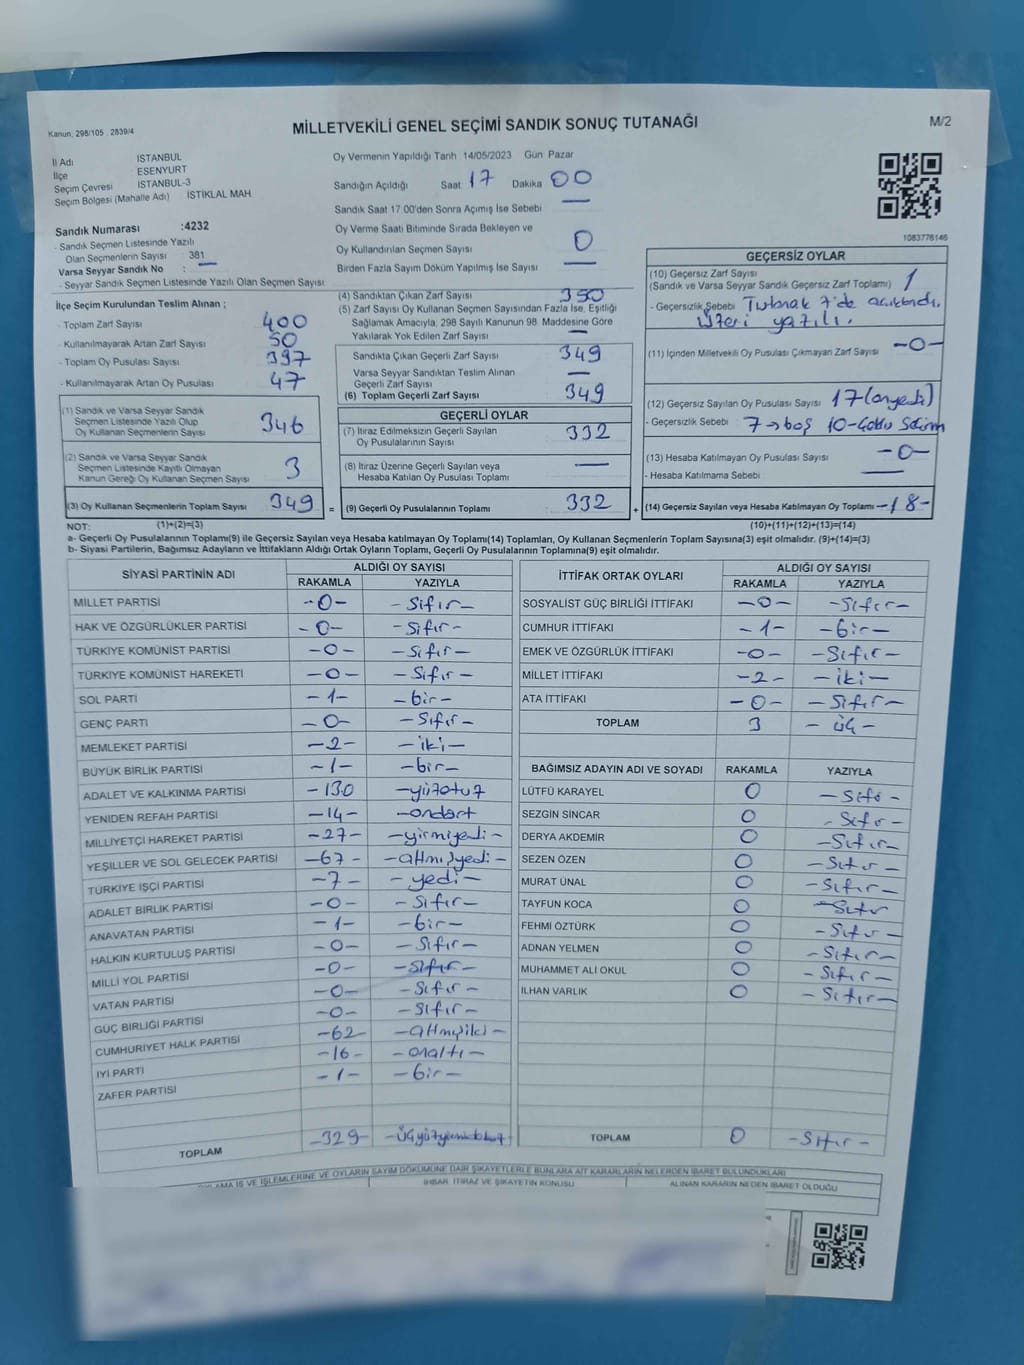 Kanun: 298/105 . 2839/4
MİLLETVEKİLİ GENEL SEÇİMİ SANDIK SONUÇ TUTANAĞI
M/2
İl Adı İSTANBUL
İlçe ESENYURT
Seçim Çevresi İSTANBUL-3
Seçim Bölgesi (Mahalle Adı) İSTİKLAL MAH.
Oy Vermenin Yapıldığı Tarih 14/05/2023 Gün Pazar
Sandığın Açıldığı Saat 17 Dakika 00
Sandık Saat 17.00'den Sonra Açılmış İse Sebebi —
Oy Verme Saati Bitiminde Sırada Bekleyen ve
Oy Kullandırılan Seçmen Sayısı 0
Birden Fazla Sayım Döküm Yapılmış İse Sayısı —
1083776146
Sandık Numarası :4232
- Sandık Seçmen Listesinde Yazılı
Olan Seçmenlerin Sayısı : 381
Varsa Seyyar Sandık No : —
- Seyyar Sandık Seçmen Listesinde Yazılı Olan Seçmen Sayısı
İlçe Seçim Kurulundan Teslim Alınan ;
- Toplam Zarf Sayısı 400
- Kullanılmayarak Artan Zarf Sayısı 50
- Toplam Oy Pusulası Sayısı 397
- Kullanılmayarak Artan Oy Pusulası 47
(1) Sandık ve Varsa Seyyar Sandık
Seçmen Listesinde Yazılı Olup
Oy Kullanan Seçmenlerin Sayısı 346
(2) Sandık ve Varsa Seyyar Sandık
Seçmen Listesinde Kayıtlı Olmayan
Kanun Gereği Oy Kullanan Seçmen Sayısı 3
(3) Oy Kullanan Seçmenlerin Toplam Sayısı 349 =
(4) Sandıktan Çıkan Zarf Sayısı 350
(5) Zarf Sayısı Oy Kullanan Seçmen Sayısından Fazla İse, Eşitliği
Sağlamak Amacıyla, 298 Sayılı Kanunun 98. Maddesine Göre
Yakılarak Yok Edilen Zarf Sayısı —
Sandıkta Çıkan Geçerli Zarf Sayısı 349
Varsa Seyyar Sandıktan Teslim Alınan
Geçerli Zarf Sayısı —
(6) Toplam Geçerli Zarf Sayısı 349
GEÇERLİ OYLAR
(7) İtiraz Edilmeksizin Geçerli Sayılan
Oy Pusulalarının Sayısı 332
(8) İtiraz Üzerine Geçerli Sayılan veya
Hesaba Katılan Oy Pusulası Toplamı —
(9) Geçerli Oy Pusulalarının Toplamı 332 +
GEÇERSİZ OYLAR
(10) Geçersiz Zarf Sayısı
(Sandık ve Varsa Seyyar Sandık Geçersiz Zarf Toplamı) 1
- Geçersizlik Sebebi Tutanak 7'de açıklandı.
Üzeri yazılı.
(11) İçinden Milletvekili Oy Pusulası Çıkmayan Zarf Sayısı -0-
(12) Geçersiz Sayılan Oy Pusulası Sayısı 17 (onyedi)
- Geçersizlik Sebebi 7→boş 10-
(13) Hesaba Katılmayan Oy Pusulası Sayısı -0-
- Hesaba Katılmama Sebebi —
(14) Geçersiz Sayılan veya Hesaba Katılmayan Oy Toplamı -18-
NOT: (1)+(2)=(3) (10)+(11)+(12)+(13)=(14)
a- Geçerli Oy Pusulalarının Toplamı(9) ile Geçersiz Sayılan veya Hesaba katılmayan Oy Toplamı(14) Toplamları, Oy Kullanan Seçmenlerin Toplam Sayısına(3) eşit olmalıdır. (9)+(14)=(3)
b- Siyasi Partilerin, Bağımsız Adayların ve İttifakların Aldığı Ortak Oyların Toplamı, Geçerli Oy Pusulalarının Toplamına(9) eşit olmalıdır.
SİYASİ PARTİNİN ADI ALDIĞI OY SAYISI
RAKAMLA YAZIYLA
MİLLET PARTİSİ -0- -Sıfır-
HAK VE ÖZGÜRLÜKLER PARTİSİ -0- -Sıfır-
TÜRKİYE KOMÜNİST PARTİSİ -0- -Sıfır-
TÜRKİYE KOMÜNİST HAREKETİ -0- -Sıfır-
SOL PARTİ -1- -bir-
GENÇ PARTİ -0- -Sıfır-
MEMLEKET PARTİSİ -2- -iki-
BÜYÜK BİRLİK PARTİSİ -1- -bir-
ADALET VE KALKINMA PARTİSİ -130 -yüzotuz
YENİDEN REFAH PARTİSİ -14- -ondört
MİLLİYETÇİ HAREKET PARTİSİ -27- -yirmiyedi-
YEŞİLLER VE SOL GELECEK PARTİSİ -67- -altmışyedi-
TÜRKİYE İŞÇİ PARTİSİ -7- -yedi-
ADALET BİRLİK PARTİSİ -0- -Sıfır-
ANAVATAN PARTİSİ -1- -bir-
HALKIN KURTULUŞ PARTİSİ -0- -Sıfır-
MİLLİ YOL PARTİSİ -0- -Sıfır-
VATAN PARTİSİ -0- -Sıfır-
GÜÇ BİRLİĞİ PARTİSİ -0- -Sıfır-
CUMHURİYET HALK PARTİSİ -62- -altmışiki-
İYİ PARTİ -16- -onaltı-
ZAFER PARTİSİ -1- -bir-
TOPLAM -329- -üçyüzyirmidokuz-
İTTİFAK ORTAK OYLARI ALDIĞI OY SAYISI
RAKAMLA YAZIYLA
SOSYALİST GÜÇ BİRLİĞİ İTTİFAKI -0- -Sıfır-
CUMHUR İTTİFAKI -1- -bir-
EMEK VE ÖZGÜRLÜK İTTİFAKI -0- -Sıfır-
MİLLET İTTİFAKI -2- -iki-
ATA İTTİFAKI -0- -Sıfır-
TOPLAM 3 -üç-
BAĞIMSIZ ADAYIN ADI VE SOYADI RAKAMLA YAZIYLA
LÜTFÜ KARAYEL 0 -Sıfır-
SEZGİN SİNCAR 0 -Sıfır-
DERYA AKDEMİR 0 -Sıfır-
SEZEN ÖZEN 0 -Sıfır-
MURAT ÜNAL 0 -Sıfır-
TAYFUN KOCA 0 -Sıfır
FEHMİ ÖZTÜRK 0 -Sıfır-
ADNAN YELMEN 0 -Sıfır-
MUHAMMET ALİ OKUL 0 -Sıfır-
İLHAN VARLIK 0 -Sıfır-
TOPLAM 0 -Sıfır-
İŞ VE İŞLEMLERİNE VE OYLARIN SAYIM DÖKÜMÜNE DAİR ŞİKAYETLERLE BUNLARA AİT KARARLARIN NELERDEN İBARET BULUNDUKLARI
İHBAR, İTİRAZ VE ŞİKAYETİN KONUSU ALINAN KARARIN NEDEN İBARET OLDUĞU